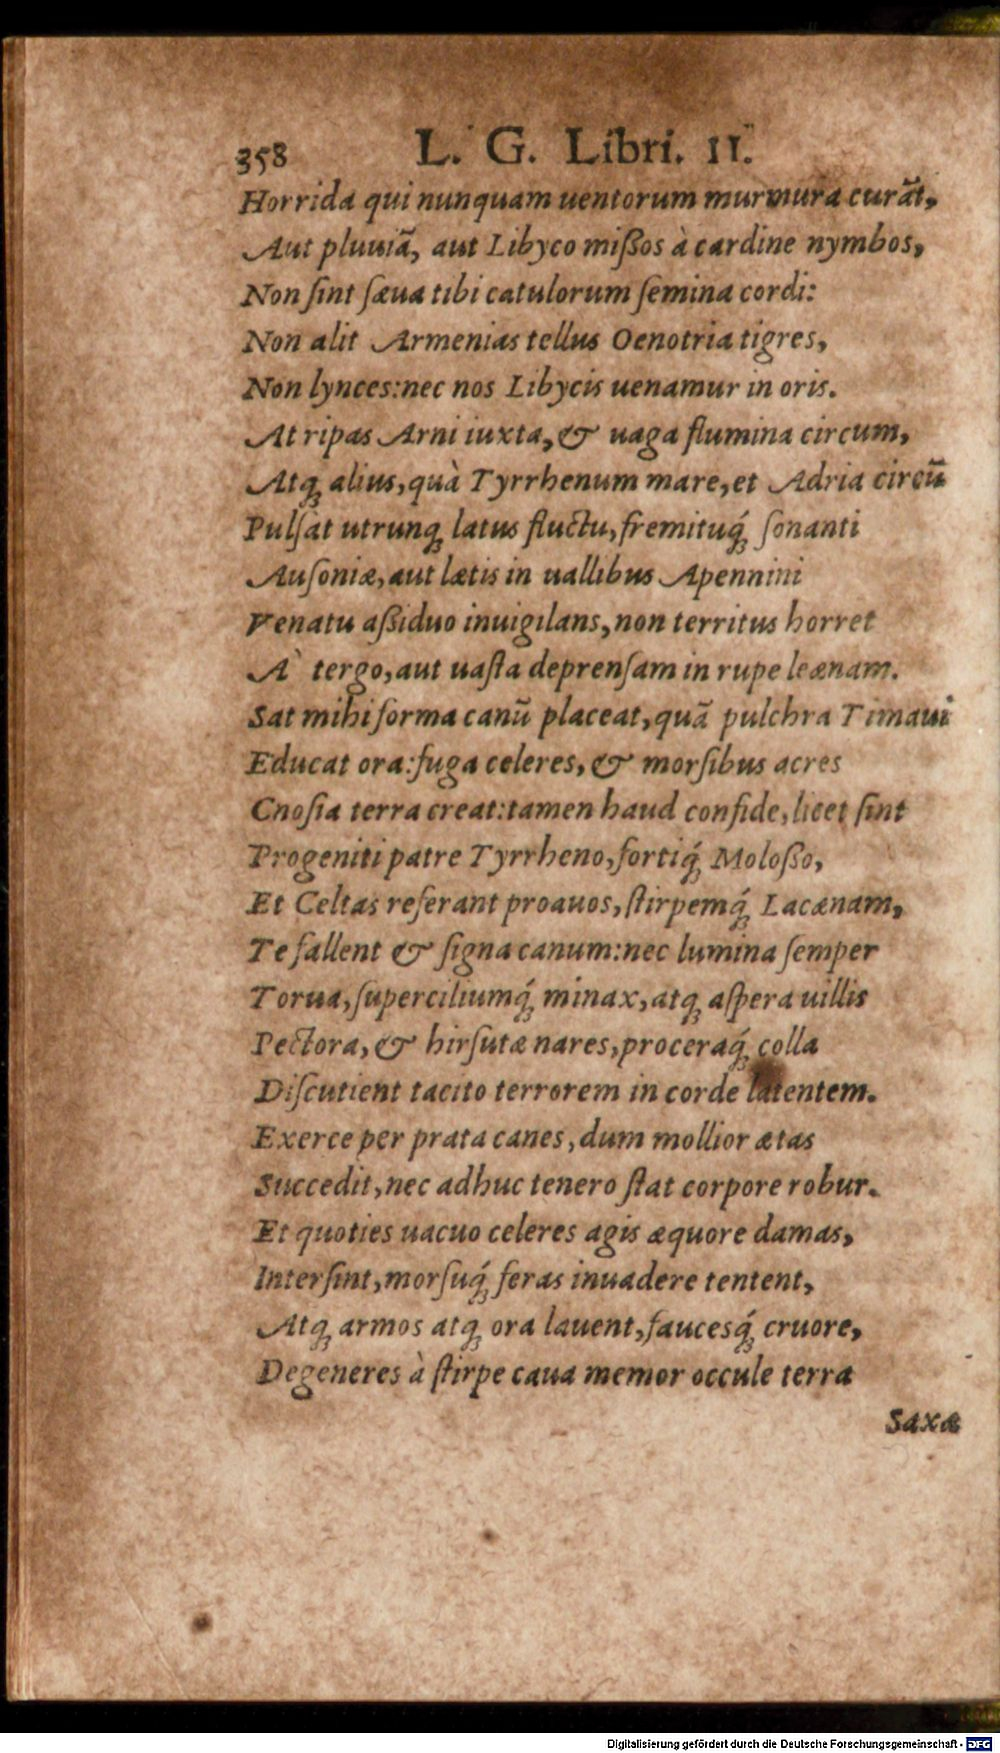 358 L. G. Libri. II.
Horrida qui nunquam uentorum murmura curãt,
Aut pluuiã, aut Libyco mißos à cardine nymbos,
Non ſint ſæua tibi catulorum ſemina cordi:
Non alit Armenias tellus Oenotria tigres,
Non lynces: nec nos Libycis uenamur in oris.
At ripas Arni iuxta, & uaga flumina circum,
Atq; alius, quà Tyrrhenum mare, et Adria circũ
Pulſat utrunq; latus fluctu, fremituq́; ſonanti
Auſoniæ, aut lætis in uallibus Apennini
Venatu aßiduo inuigilans, non territus horret
A` tergo, aut uaſta deprenſam in rupe leænam.
Sat mihi forma canũ placeat, quã pulchra Timaui
Educat ora: fuga celeres, & morſibus acres
Cnoſia terra creat: tamen haud confide, licet ſint
Progeniti patre Tyrrheno, fortiq́; Moloßo,
Et Celtas referant proauos, ſtirpemq́; Lacænam,
Te fallent & ſigna canum: nec lumina ſemper
Torua, ſuperciliumq́; minax, atq; aſpera uillis
Pectora, & hirſutæ nares, proceraq́; colla
Diſcutient tacito terrorem in corde latentem.
Exerce per prata canes, dum mollior ætas
Succedit, nec adhuc tenero ſtat corpore robur.
Et quoties uacuo celeres agis æquore damas,
Interſint, morſuq́; feras inuadere tentent,
Atq; armos atq; ora lauent, faucesq́; cruore,
Degeneres à ſtirpe caua memor occule terra
Saxæ
Digitalisierung gefördert durch die Deutsche Forschungsgemeinschaft - DFG